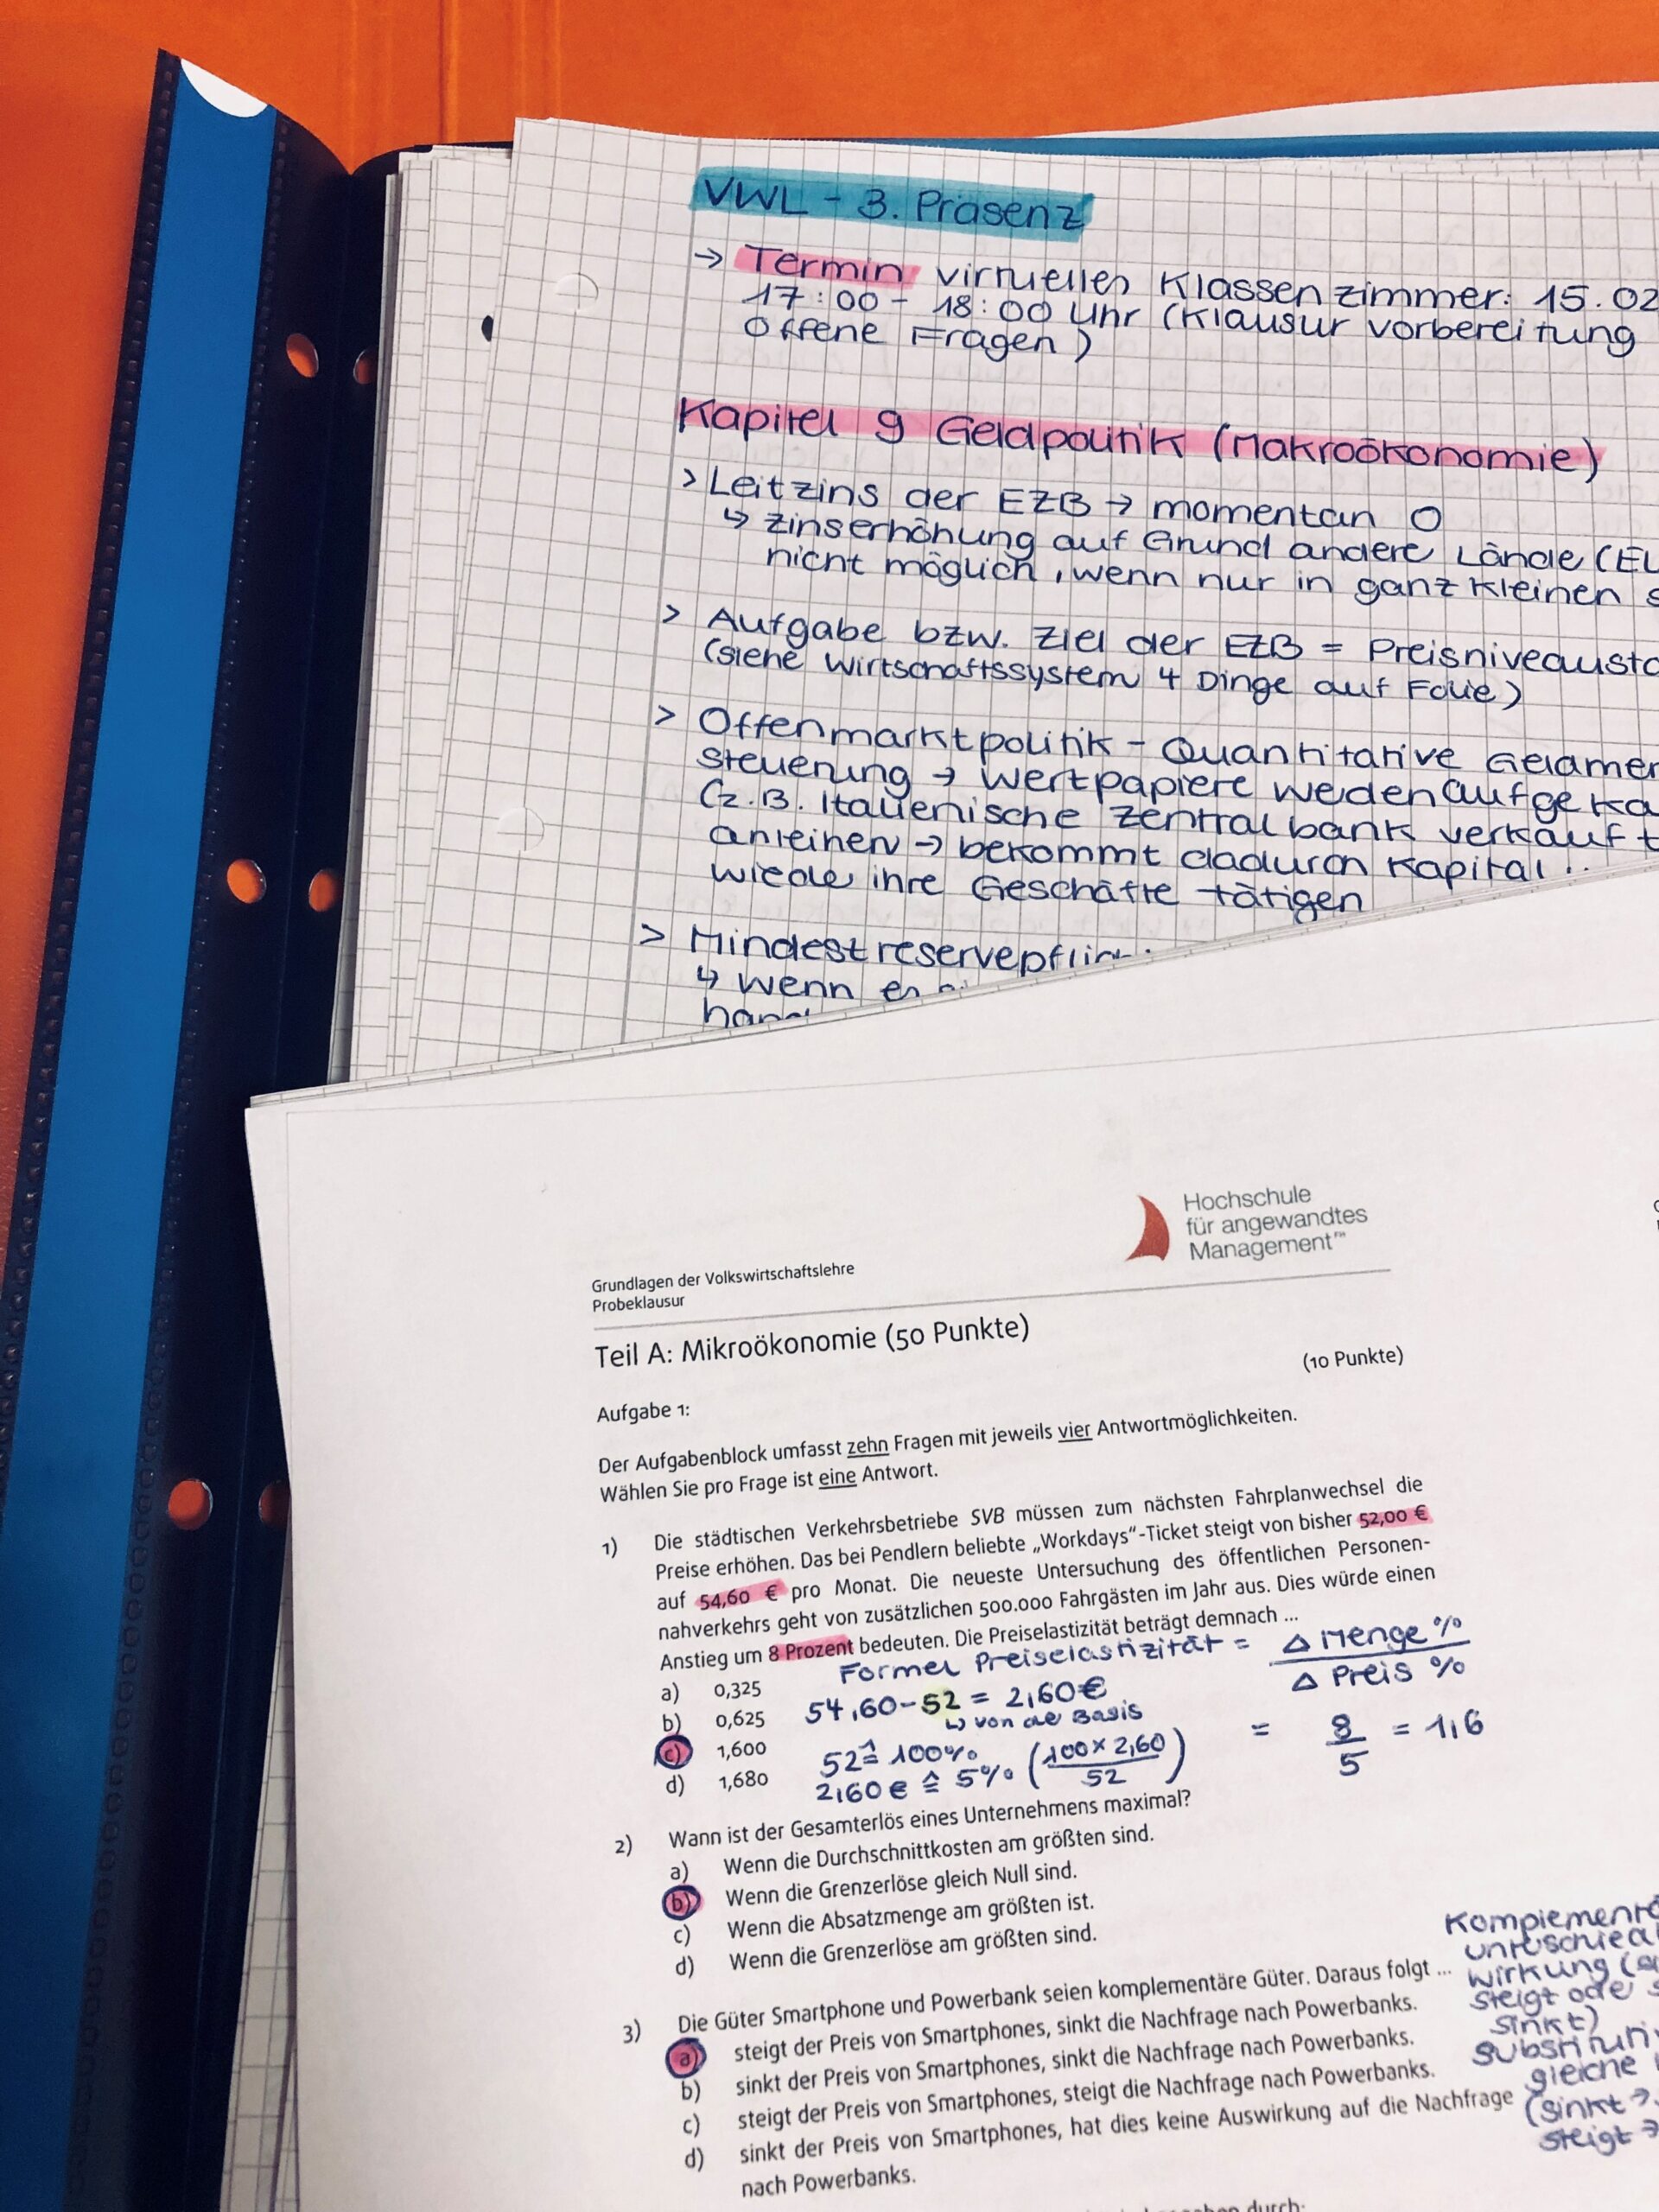 VWL - 3. Präsenz
→ Termin virtuelles Klassenzimmer: 15.02
17:00 - 18:00 Uhr (Klausur vorbereitung
Offene Fragen)
Kapitel 9 Geldpolitik (Makroökonomie)
> Leitzins der EZB → momentan 0
↳ Zinserhöhung auf Grund andere Lände (EU
nicht möglich, wenn nur in ganz kleinen
> Aufgabe bzw. Ziel der EZB = Preisniveausta
(siehe Wirtschaftssystem 4 Dinge auf Folie)
> Offenmarktpolitik - Quantitative Geldmen
steuerung → Wertpapiere weden aufgeka
(z.B. Italienische Zentralbank verkauft
anleihen → bekommt dadurch Kapital
wiede ihre Geschäfte tätigen
> Mindestreservepflich
↳ wenn
Hochschule
für angewandtes
Management™
Grundlagen der Volkswirtschaftslehre
Probeklausur
Teil A: Mikroökonomie (50 Punkte)
(10 Punkte)
Aufgabe 1:
Der Aufgabenblock umfasst zehn Fragen mit jeweils vier Antwortmöglichkeiten.
Wählen Sie pro Frage ist eine Antwort.
1) Die städtischen Verkehrsbetriebe SVB müssen zum nächsten Fahrplanwechsel die
Preise erhöhen. Das bei Pendlern beliebte „Workdays“-Ticket steigt von bisher 52,00 €
auf 54,60 € pro Monat. Die neueste Untersuchung des öffentlichen Personen-
nahverkehrs geht von zusätzlichen 500.000 Fahrgästen im Jahr aus. Dies würde einen
Anstieg um 8 Prozent bedeuten. Die Preiselastizität beträgt demnach ...
Formel Preiselastizität = Δ Menge % / Δ Preis %
a) 0,325
54,60-52 = 2,60€
b) 0,625
↳ von de Basis
c) 1,600
52≙ 100%
= 8/5 = 1,6
d) 1,680
2,60€ ≙ 5% (100 × 2,60 / 52)
2) Wann ist der Gesamterlös eines Unternehmens maximal?
a) Wenn die Durchschnittkosten am größten sind.
b) Wenn die Grenzerlöse gleich Null sind.
c) Wenn die Absatzmenge am größten ist.
d) Wenn die Grenzerlöse am größten sind.
3) Die Güter Smartphone und Powerbank seien komplementäre Güter. Daraus folgt ...
a) steigt der Preis von Smartphones, sinkt die Nachfrage nach Powerbanks.
b) sinkt der Preis von Smartphones, sinkt die Nachfrage nach Powerbanks.
c) steigt der Preis von Smartphones, steigt die Nachfrage nach Powerbanks.
d) sinkt der Preis von Smartphones, hat dies keine Auswirkung auf die Nachfrage
nach Powerbanks.
Komplementä
wirkung
steigt ode
sinkt)
Substituti
gleiche
(sinkt →
steigt →
durch: